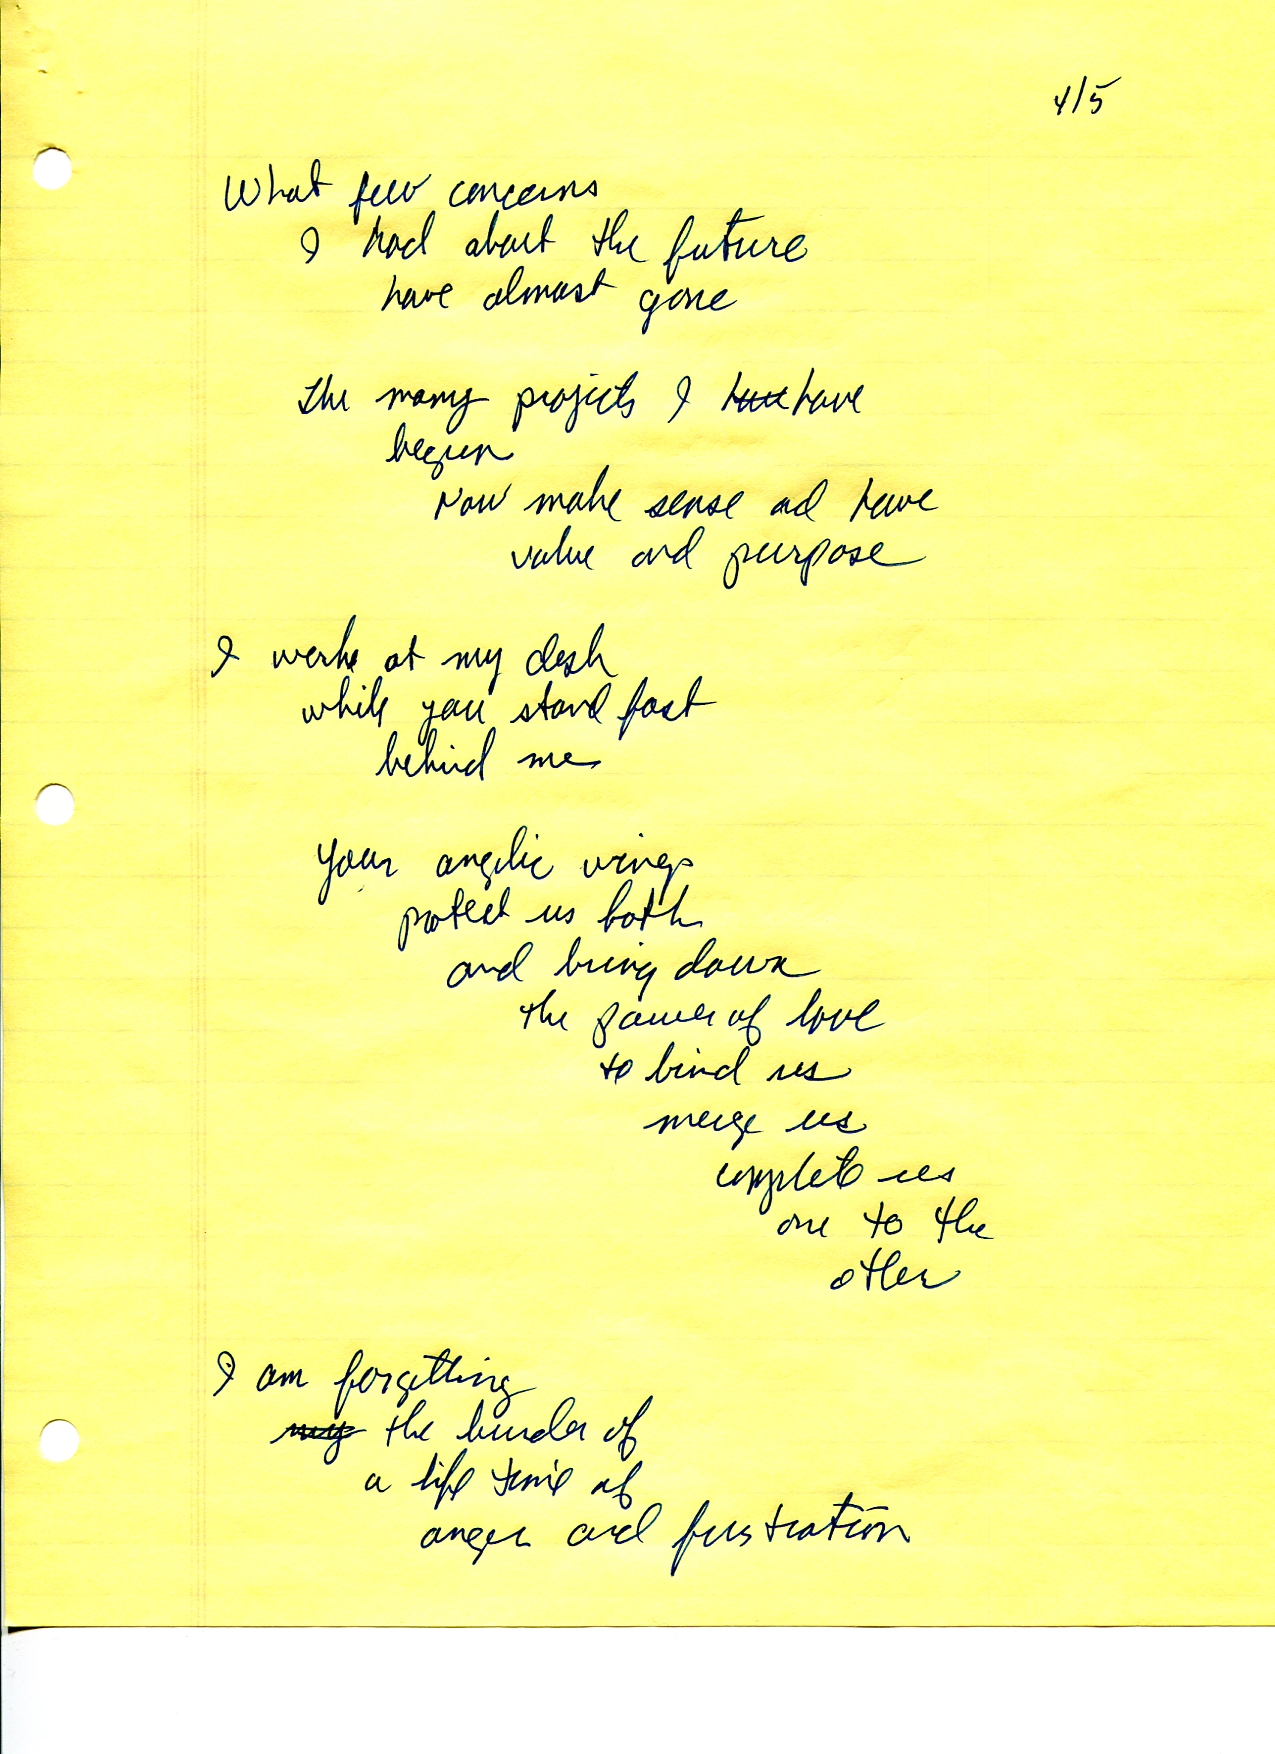 4/5
What few concerns
I had about the future
have almost gone
The many projects I have
begun
Now make sense ad have
value and purpose
I work at my desk
while you stand fast
behind me
Your angelic wings
protect us both
and bring down
the power of love
to bind us
merge us
complete us
one to the
other
I am forgetting
my the burden of
a life time of
anger and frustration